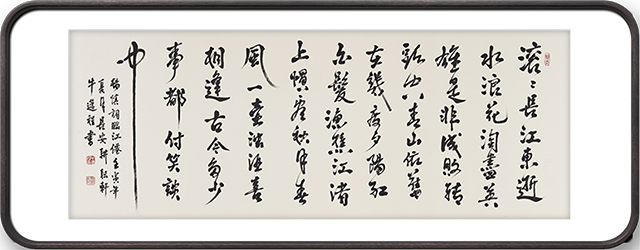 滚〻長江東逝
水浪花淘盡英
雄是非成敗轉
頭空青山依舊
在幾度夕陽紅
白髮漁樵江渚
上慣看秋月春
風一壺濁酒喜
相逢古今多少
事都付笑談
中
楊慎詞臨江仙壬寅年
夏月
牛書